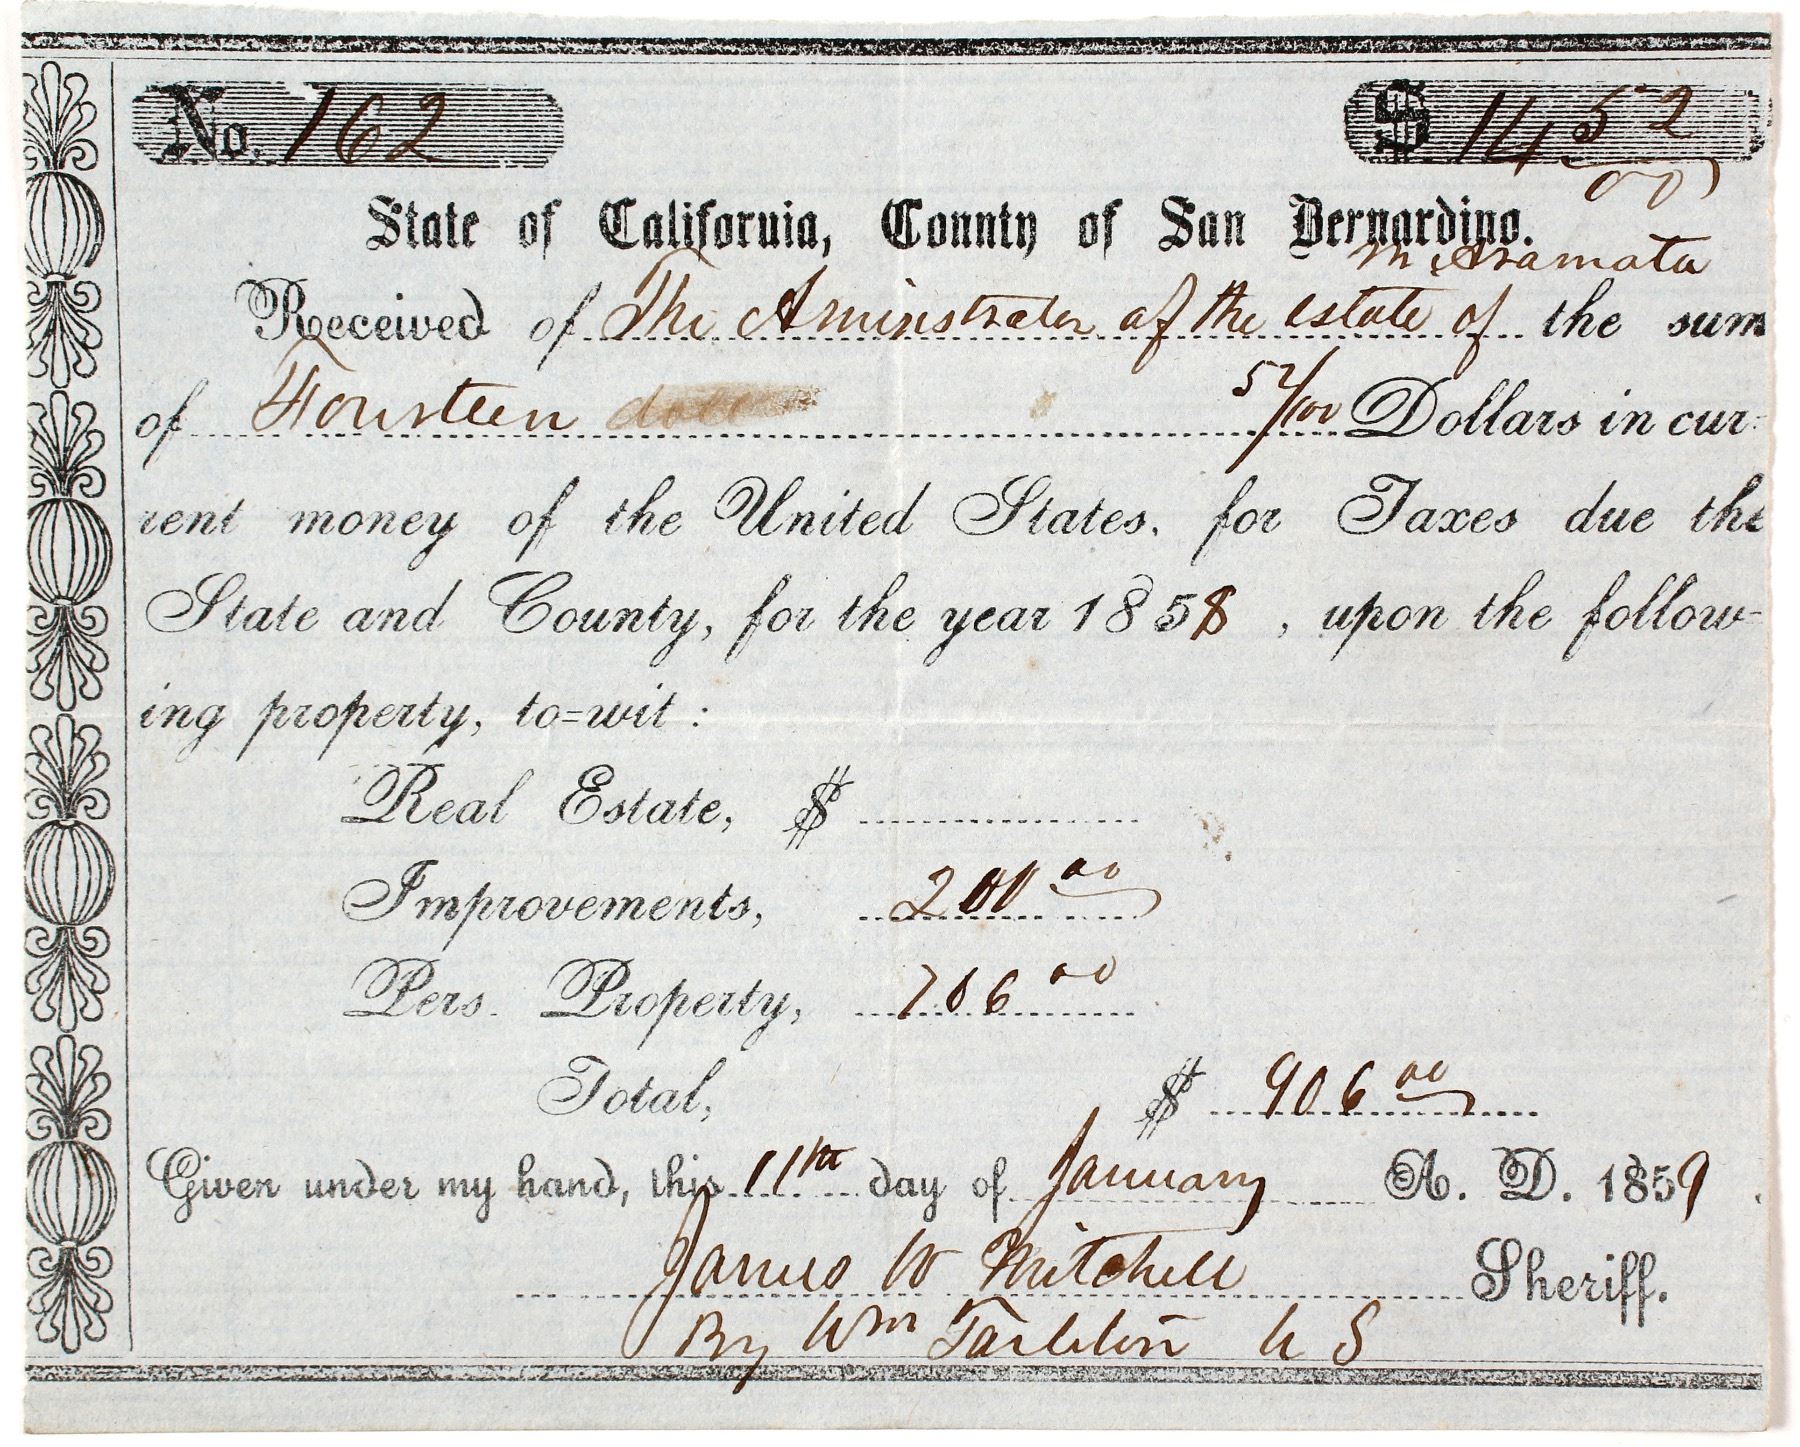 No. 162
$ 14 52/00
State of California, County of San Bernardino.
Received of The Aminstrator of the estate of M Aramata the sum
of Fourteen doll 52/100 Dollars in cur-
rent money of the United States, for Taxes due the
State and County, for the year 1858, upon the follow-
ing property, to=wit:
Real Estate, $
Improvements, 200 00
Pers. Property, 706 00
Total, $ 906 00
Given under my hand, this 11th day of January A. D. 1859.
James W Mitchell Sheriff.
By Wm Tarleton U S